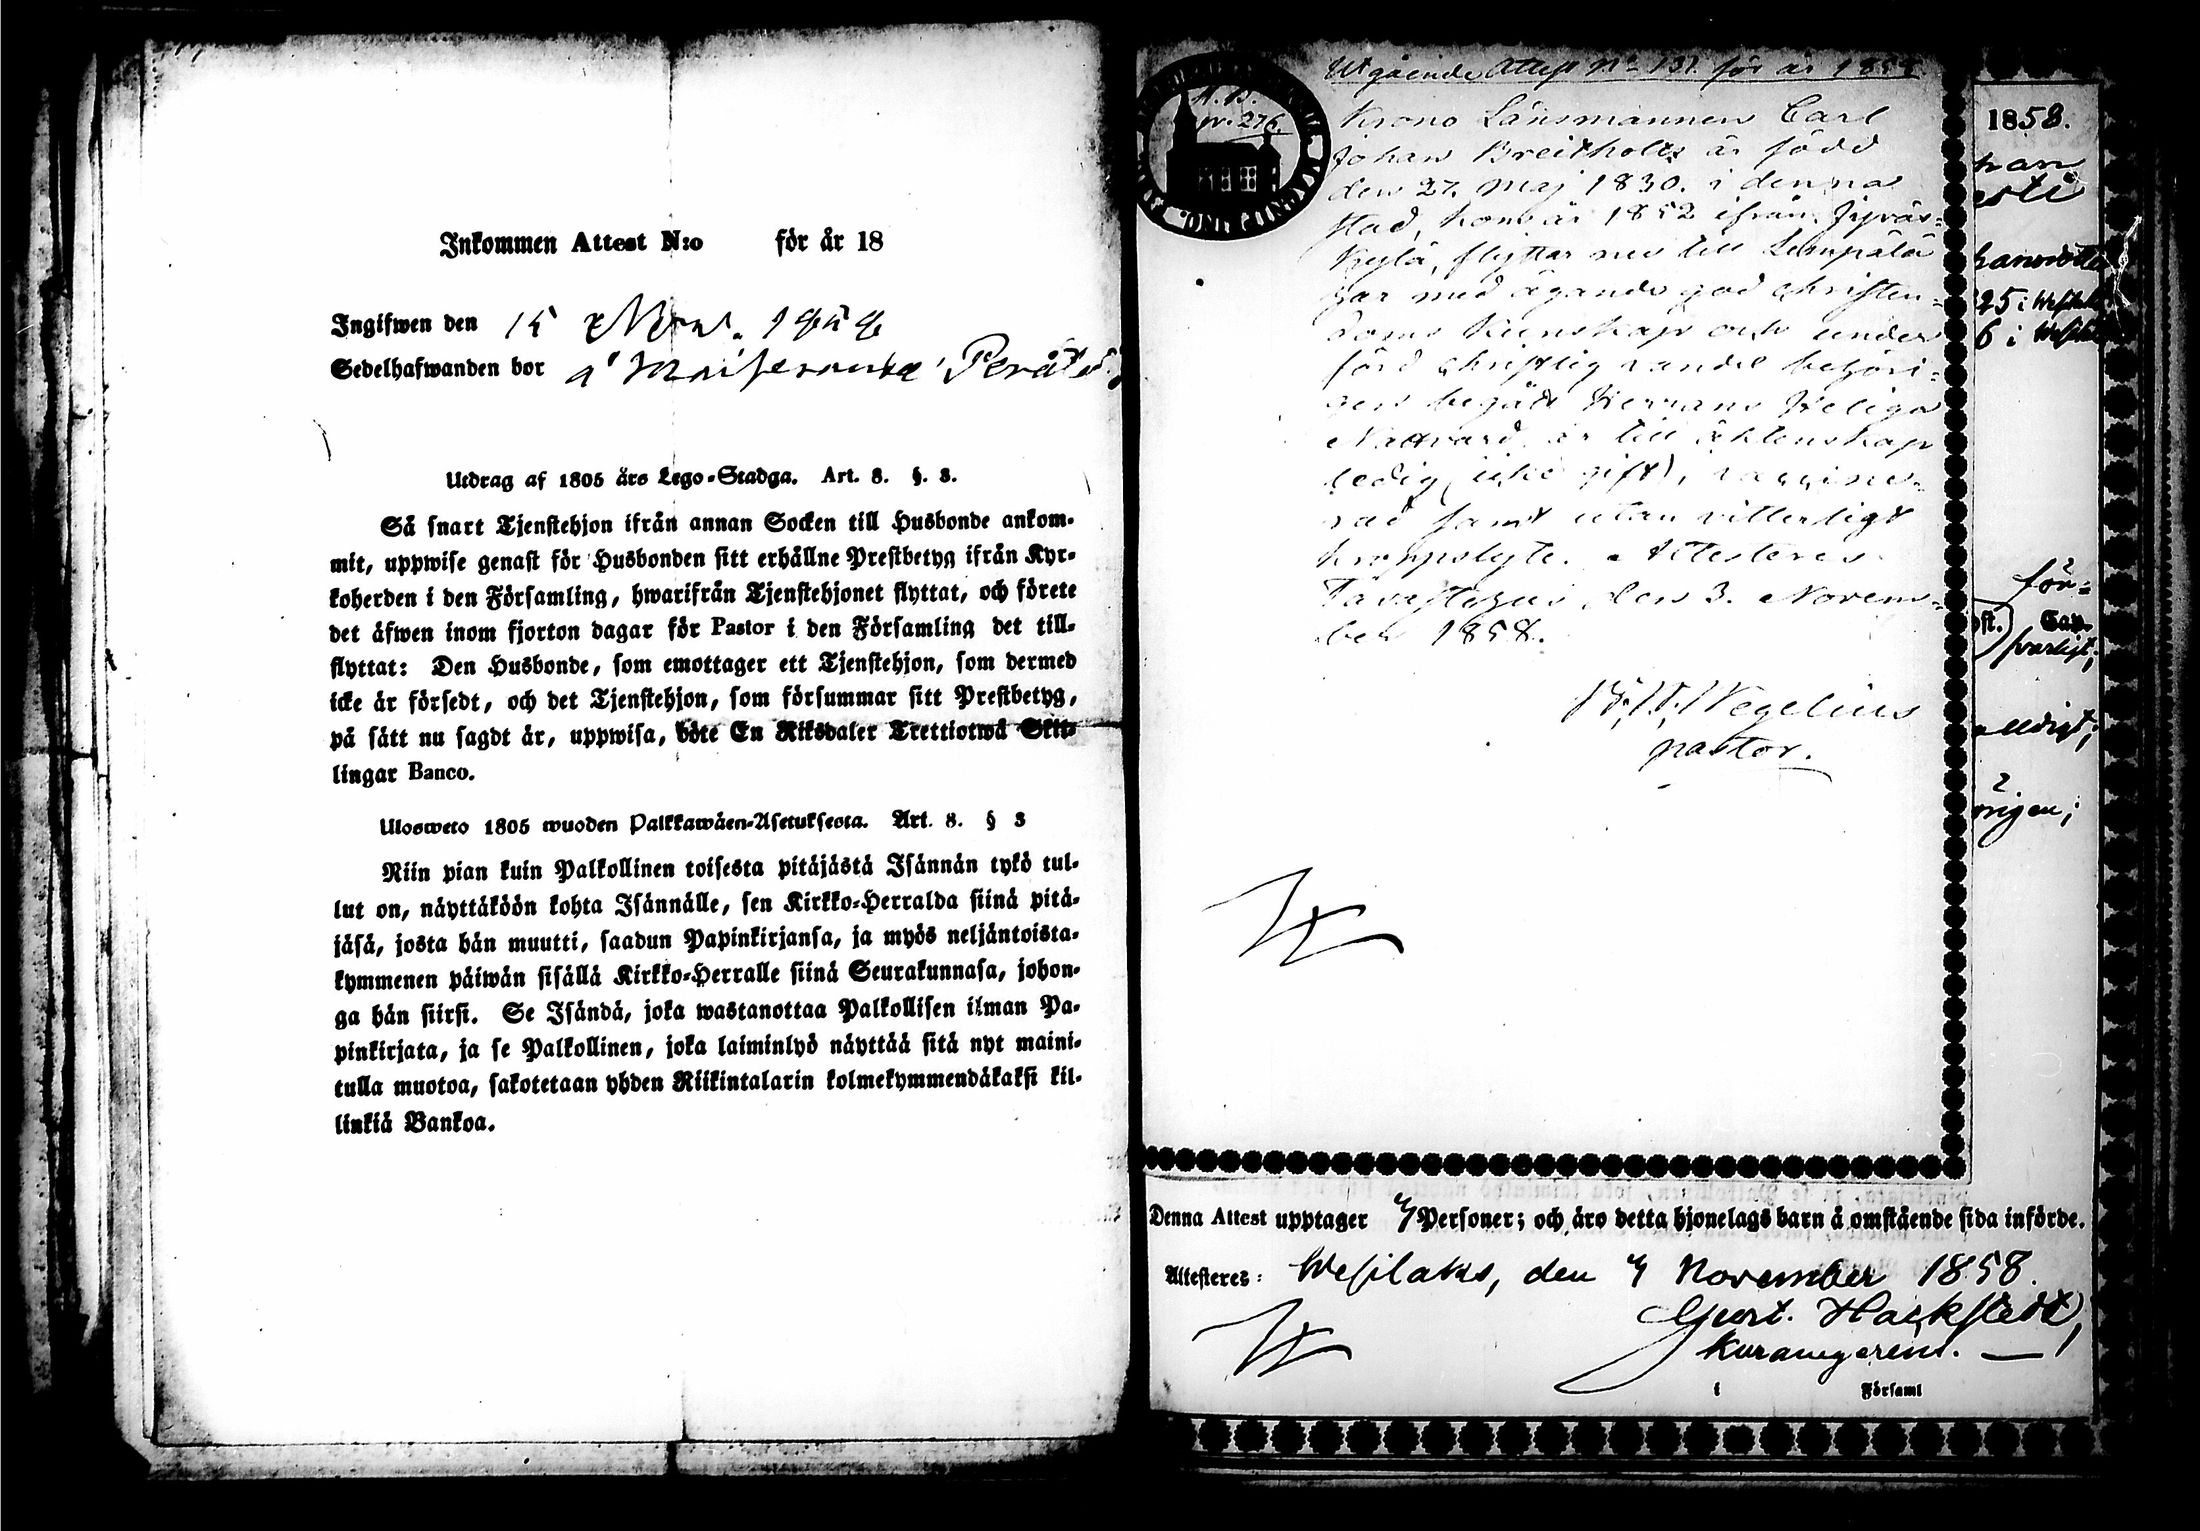 Inkommen Attest N:o för år 18
Ingifwen den 15 Nov. 1858
Sedelhafwanden bor
Utdrag af 1805 års Lego-Stadga. Art. 8. §. 3.
Så snart Tjenstehjon ifrån annan Socken till Husbonde ankom-
mit, uppwise genast för Husbonden sitt erhållne Prestbetyg ifrån Kyr-
koherden i den Församling, hwarifrån Tjenstehjonet flyttat, och förete
det äfwen inom fjorton dagar för Pastor i den Församling det till-
flyttat: Den Husbonde, som emottager ett Tjenstehjon, som dermed
icke är försedt, och det Tjenstehjon, som försummar sitt Prestbetyg,
på sätt nu sagdt är, uppwisa, böte En Riksdaler Trettiotwå Skil-
lingar Banco.
Uloswеto 1805 wuoden Palkkawäen-Asetuksesta. Art. 8. § 3
Niin pian kuin Palkollinen toisesta pitäjästä Isännän tykö tul-
lut on, näyttäköön kohta Isännälle, sen Kirkko-Herralda siinä pitä-
jäsä, josta hän muutti, saadun Papinkirjansa, ja myös neljäntoista-
kymmenen päiwän sisällä Kirkko-Herralle siinä Seurakunnasa, johon-
ga hän siirsi. Se Isändä, joka wastanottaa Palkollisen ilman Pa-
pinkirjata, ja se Palkollinen, joka laiminlyö näyttää sitä nyt maini-
tulla muotoa, sakotetaan yhden Riikintalarin kolmekymmendäkaksi kil-
linkiä Bankoa.
Utgående Attest No 131. för år 1858.
pr. 276.
Krono Länsmannen Carl
Johan Breitholtz är född
den 27. Maj 1830. i denna
stad, kom år 1852 ifrån Jyväs-
kylä, flyttar nu till Lempälä
har med ägande god christen-
doms kunskap och under
förd christlig vandel behöri-
gen begått Herrans Heliga
Nattvard, är till äktenskap
ledig (icke gift), vaccine-
rad samt utan vitterligt
kroppslyte. Attesteres
Tavastehus den 3. Novem-
ber 1858.
Wegelius
pastor.
1858.
för-
svarligt;
Denna Attest upptager 4 Personer; och äro detta hjonelags barn å omstående sida införde.
Attesteres: Wesilaks, den 4 November 1858.
Gust. Hackstedt,
i Församl